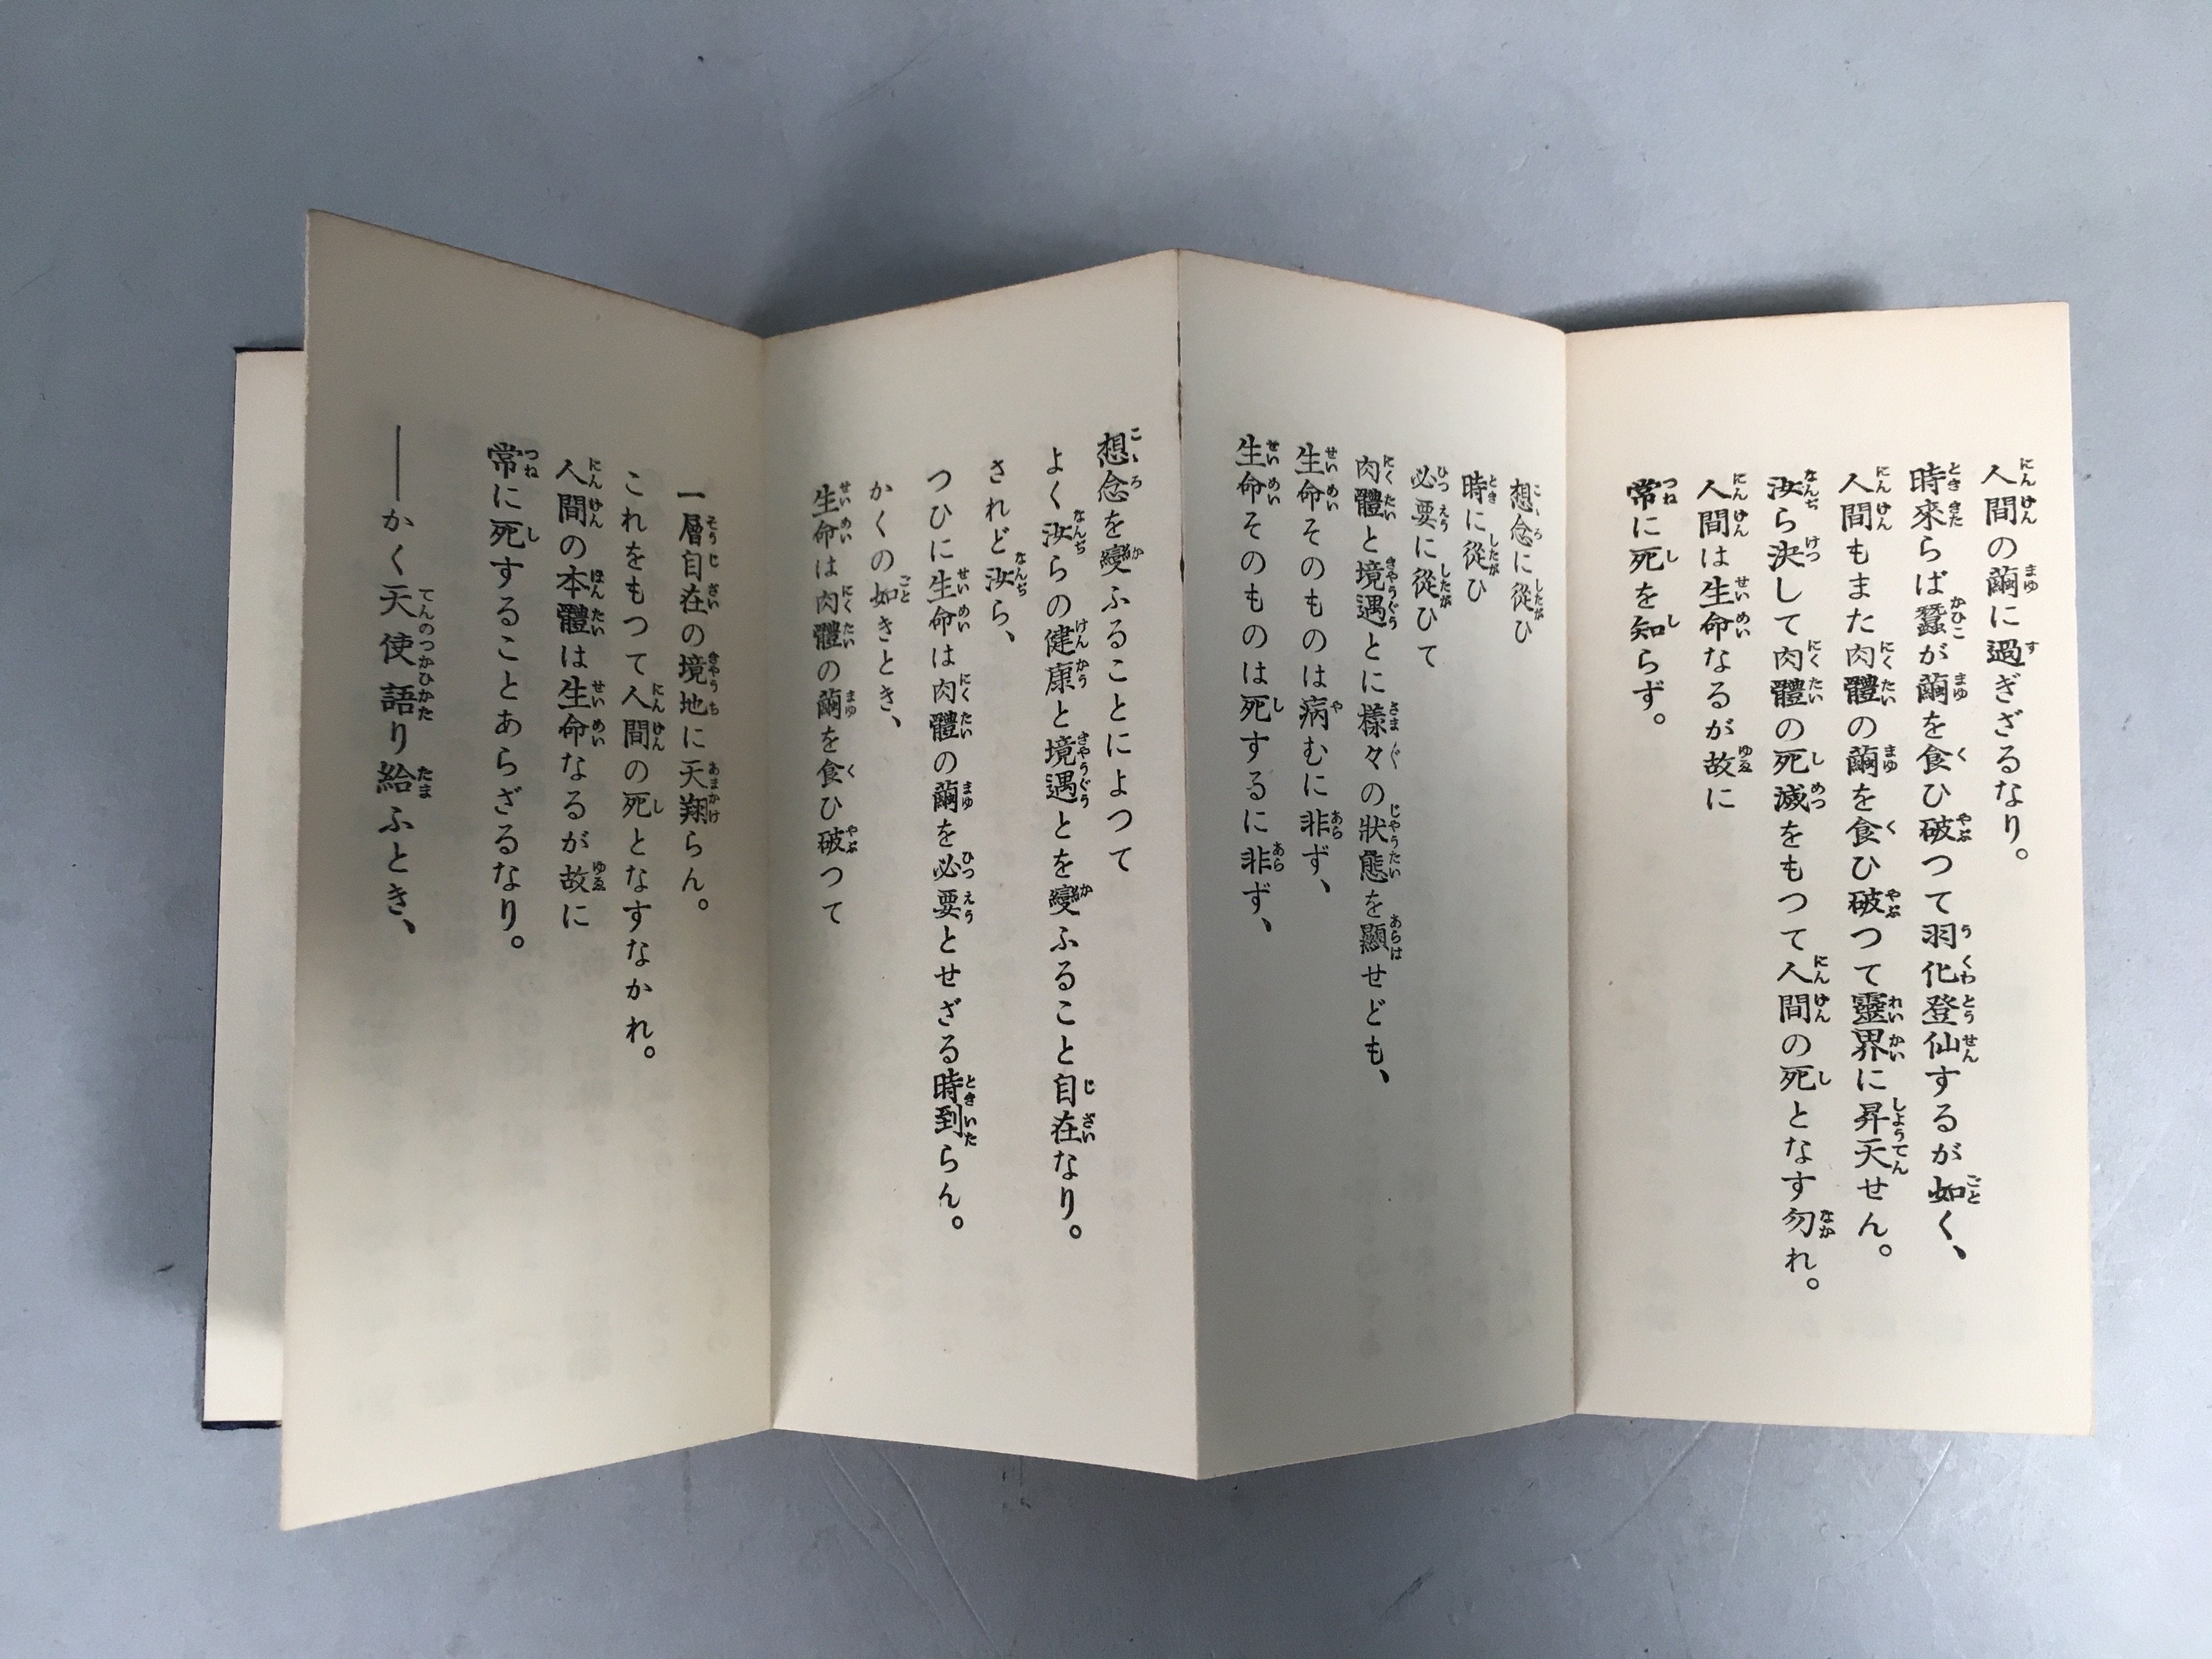 人間の繭に過ぎざるなり。
時來らば蠶が繭を食ひ破つて羽化登仙するが如く、
人間もまた肉體の繭を食ひ破つて靈界に昇天せん。
汝ら決して肉體の死滅をもつて人間の死となす勿れ。
人間は生命なるが故に
常に死を知らず。
想念に從ひ
時に從ひ
必要に從ひて
肉體と境遇とに樣々の狀態を顯せども、
生命そのものは病むに非ず、
生命そのものは死するに非ず、
想念を變ふることによつて
よく汝らの健康と境遇とを變ふること自在なり。
されど汝ら、
つひに生命は肉體の繭を必要とせざる時到らん。
かくの如きとき、
生命は肉體の繭を食ひ破つて
一層自在の境地に天翔らん。
これをもつて人間の死となすなかれ。
人間の本體は生命なるが故に
常に死することあらざるなり。
――かく天使語り給ふとき、